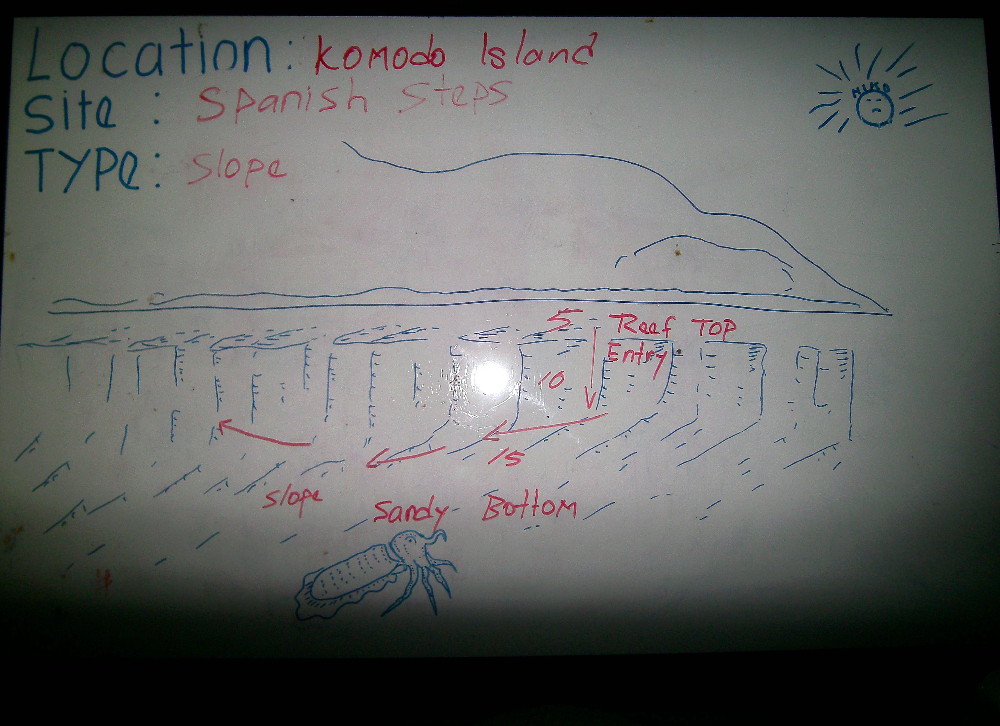 Location: Komodo Island
Site: Spanish Steps
TYPe: Slope
NIKO
5 Reef TOP
Entry
10
15
slope
Sandy Bottom